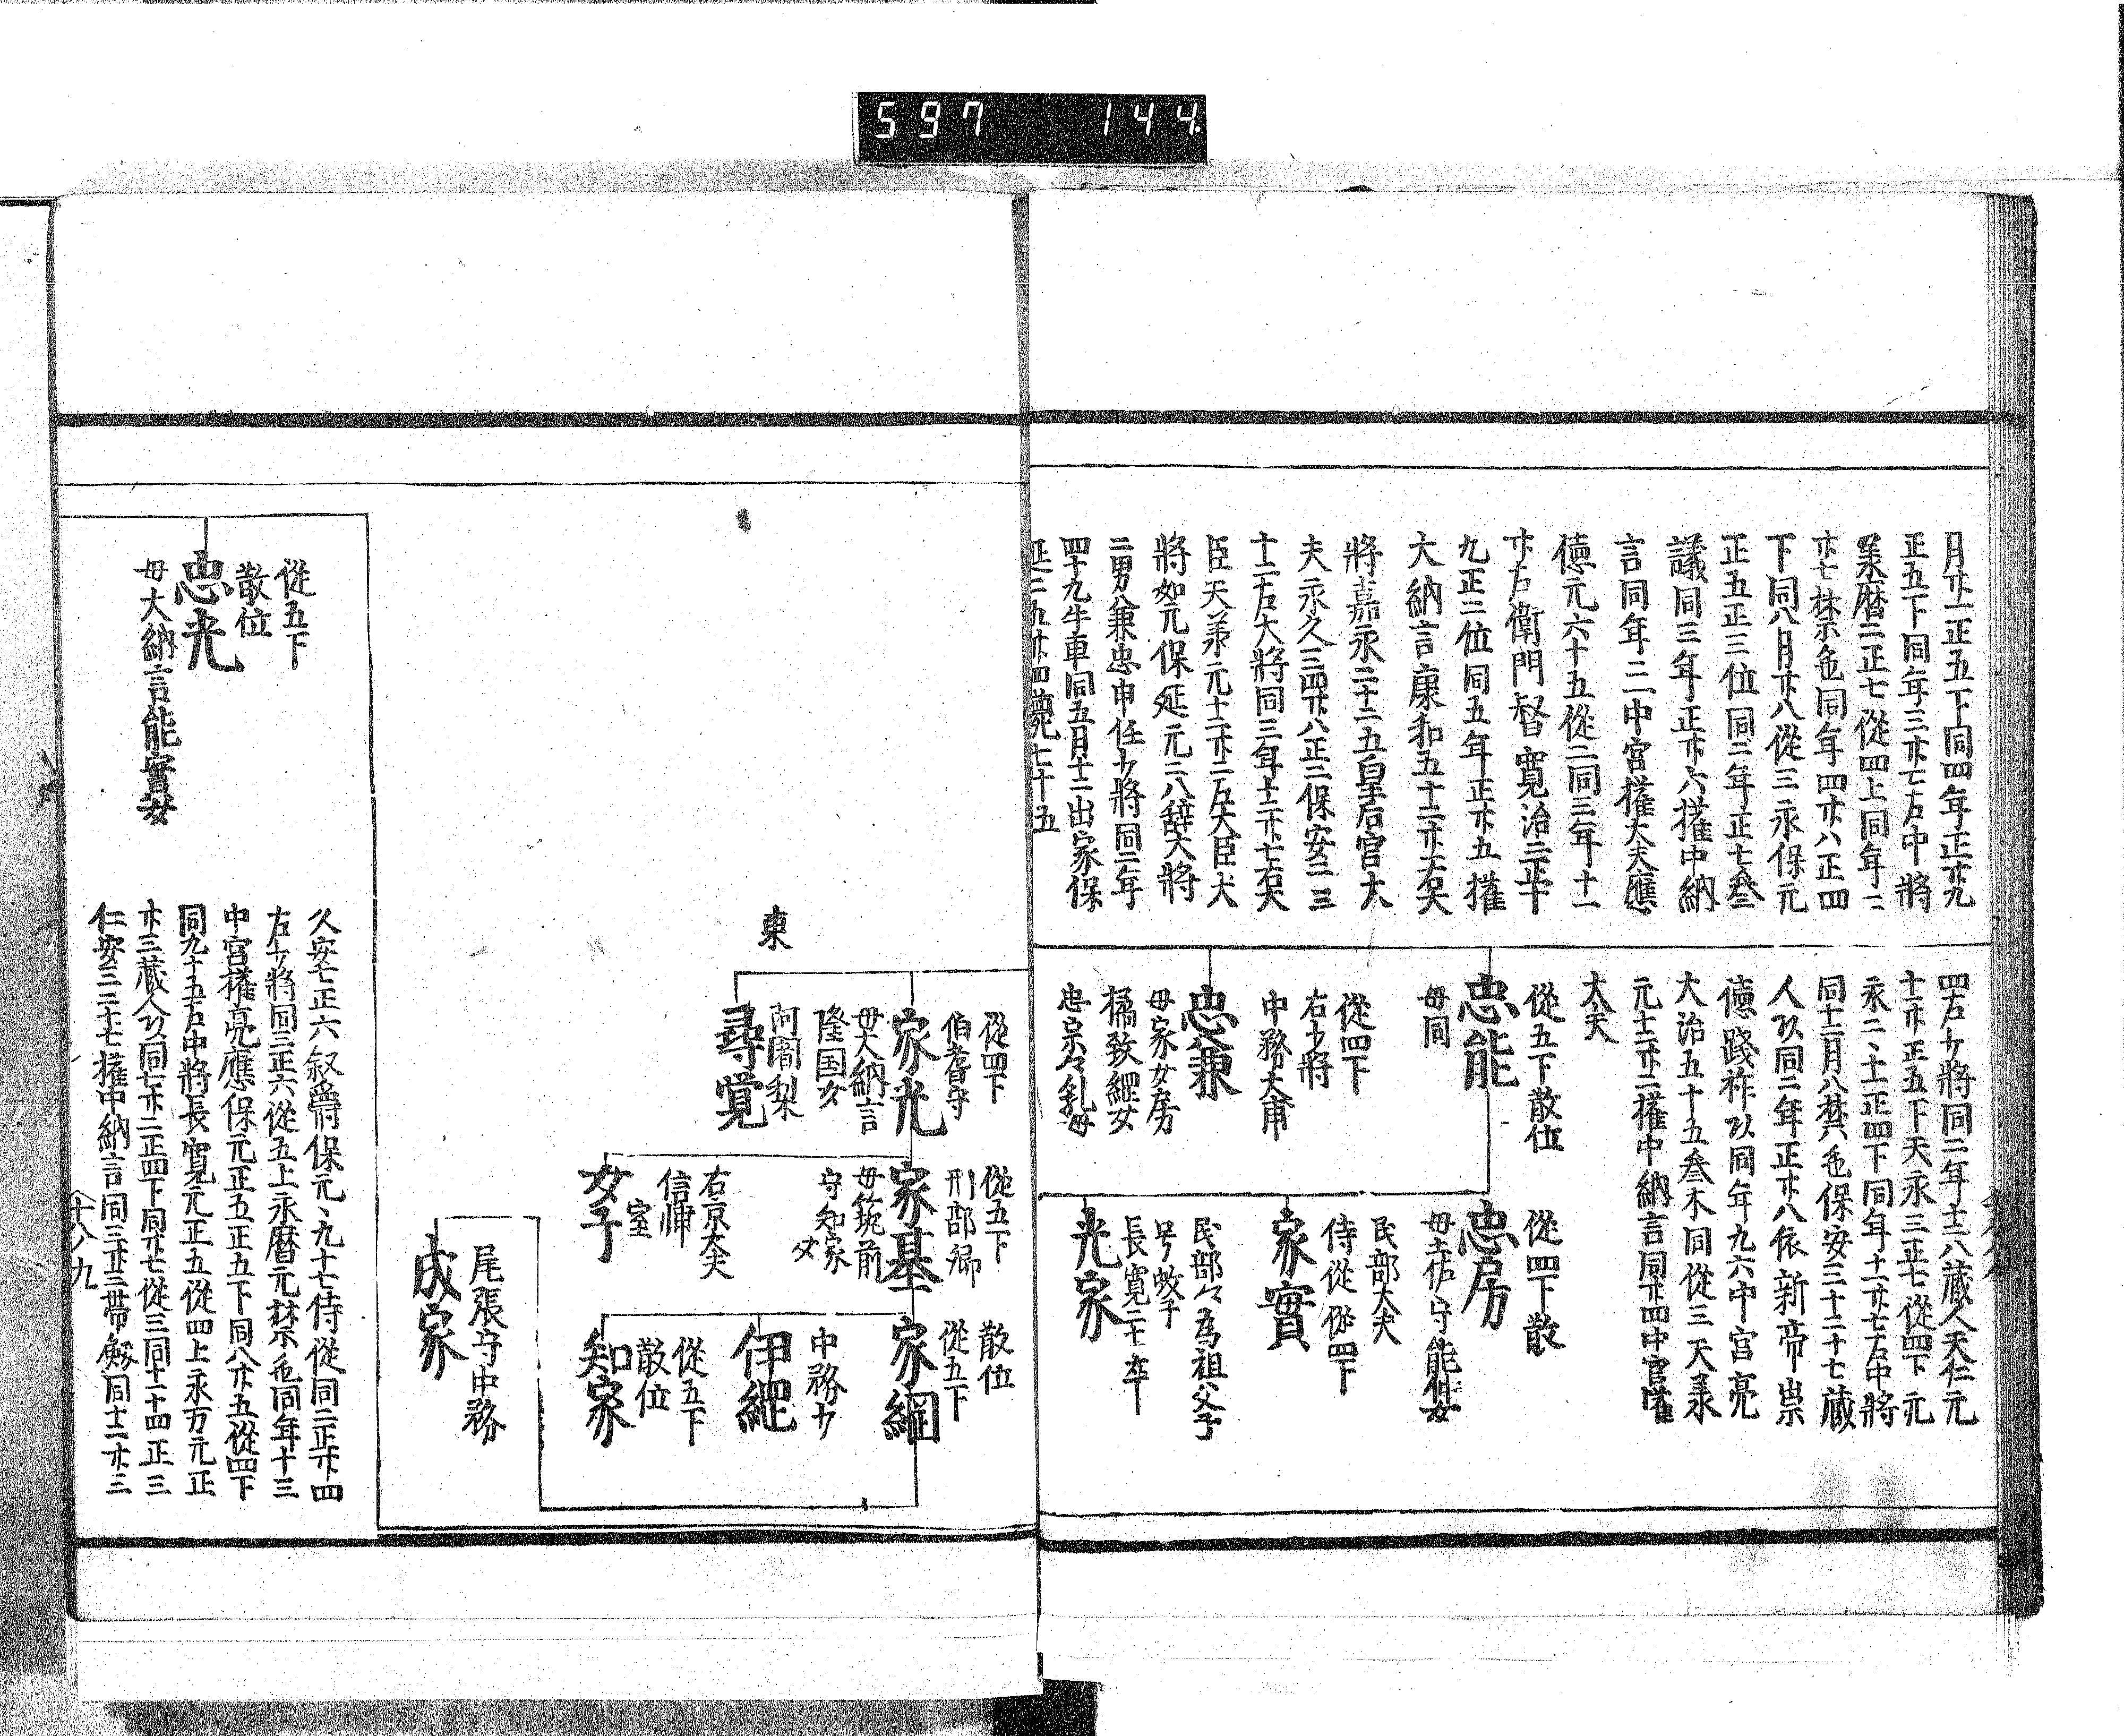 597 144
月廿一正五下同四年正廿九
正五下同年三廿七右中將
承暦二正七從四上同年二
廿七禁色同年四廿八正四
下同八月廿八從三永保元
正五正三位同二年正七叅
議同三年正廿六權中納
言同年二中宮權大夫應
德元六十五從二同三年十一
廿右衛門督寛治二正十
九正二位同五年正廿五權
大納言康和五十二廿一右大
將嘉承二十二五皇后宮大
夫永久三四廿八正二保安三三
十二左大將同三年十二廿七右大
臣天承元十二廿二左大臣大
將如元保延元二八辞大將
二男兼忠申任少將同二年
四十九牛車同五月十二出家保
延二五廿四薨七十五
四右少將同二年十二八蔵人天仁元
十一廿正五下天永三正七從四下元
永二、十一正四下同年十一廿七右中將
同十二月八禁色保安三十二十七蔵
人以同二年正廿八依新帝祟
德踐祚以同年九六中宮亮
大治五十五叅木同從三天承
元十二廿二權中納言同廿四中宮權
大夫
從五下散位
忠能
母同
從四下
右少將
中務大甫
忠兼
母家女房
橘致綱女
忠宗々乳母
從四下散
忠房
母土佐守能佐女
民部大夫
侍從從四下
家實
民部々為祖父子
号蚊子
長寛二十二卒
光家
東
從四下
伯耆守
家光
母大納言
隆国女
阿闍梨
尋覚
從五下
刑部卿
家基
母筑前
守知家
女
右京大夫
信輔
室
女子
散位
從五下
家綱
中務少
伊綱
從五下
散位
知家
尾張守中務
成家
從五下
散位
忠光
母大納言能實女
久安七正六叙爵保元、九十七侍從同二正廿四
右少將同三正六從五上永暦元禁色同年十三
中宮權亮應保元正五正五下同八廿五從四下
同九十五右中將長寛元正五從四上永万元正
廿三蔵人以同七廿二正四下同廿七從三同十一十四正三
仁安三二十七權中納言同三廿三帯劔同十二廿三
十八ノ九